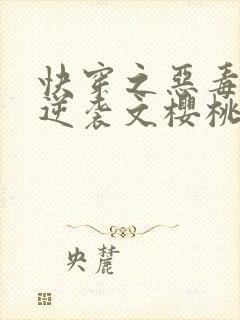 快穿之惡毒
逆袭文櫻桃
央麓